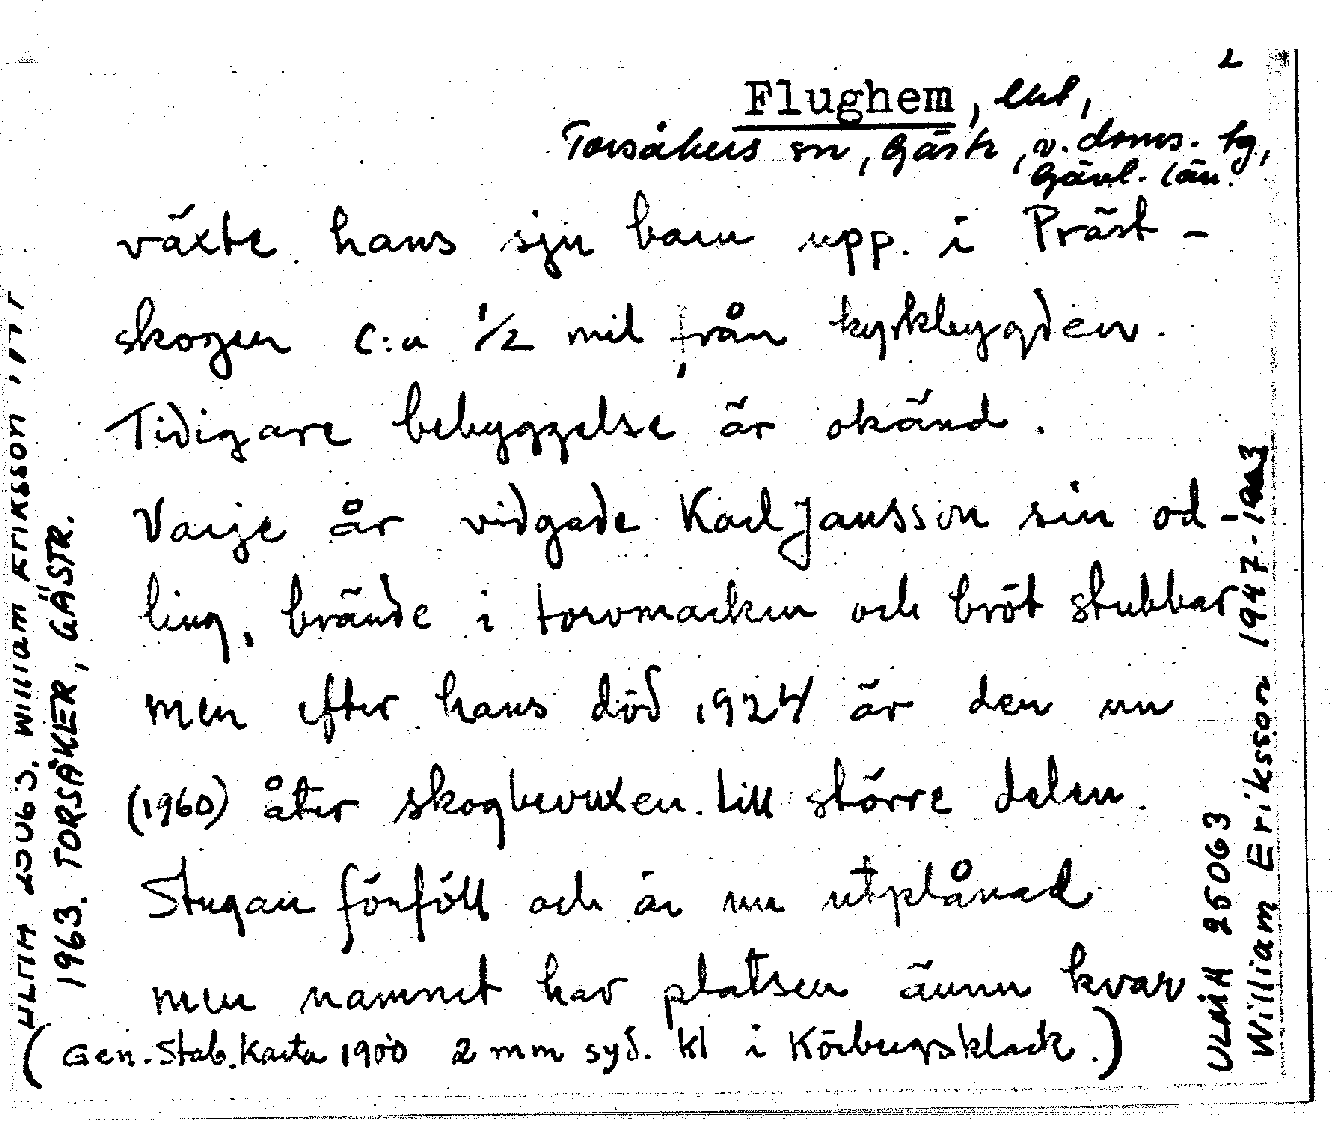 2
Flughem, lht,
Torsåkers sn, Gästr, v. doms. tg,
Gävl. län.
växte hans sju barn upp i Präst-
skogen c:a 1/2 mil från kyrkbygden.
Tidigare bebyggelse är okänd.
Varje år vidgade Karl Jansson sin od-
ling, brände i torvmarken och bröt stubbar
men efter hans död 1924 är den nu
(1960) åter skogbevuxen till större delen.
Stugan förföll och är nu utplånad
men namnet har platsen ännu kvar
(Gen. Stab. Karta 1900 2 mm syd. kl i Körbergsklack.)
ULMA 25063. William Eriksson
1963. TORSÅKER, GÄSTR.
ULMA 25063
William Eriksson 1947-1963